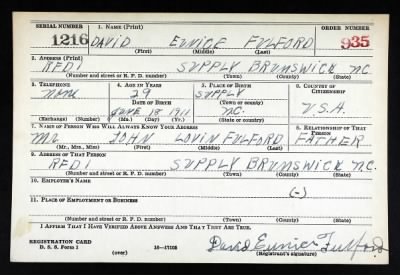 SERIAL NUMBER 1. NAME (Print) ORDER NUMBER
1216 DAVID EUNICE FULFORD 935
(First) (Middle) (Last)
2. ADDRESS (Print)
RFD1 SUPPLY BRUNSWICK N.C.
(Number and street or R. F. D. number) (Town) (County) (State)
3. TELEPHONE 4. AGE IN YEARS 5. PLACE OF BIRTH 6. COUNTRY OF CITIZENSHIP
NONE 29 SUPPLY
DATE OF BIRTH (Town or county)
JUNE 18 1911 N.C. U.S.A.
(Exchange) (Number) (Mo.) (Day) (Yr.) (State or country)
7. NAME OF PERSON WHO WILL ALWAYS KNOW YOUR ADDRESS 8. RELATIONSHIP OF THAT PERSON
Mr. JOHN LOVIN FULFORD FATHER
(Mr., Mrs., Miss) (First) (Middle) (Last)
9. ADDRESS OF THAT PERSON
RFD1 SUPPLY BRUNSWICK N.C.
(Number and street or R. F. D. number) (Town) (County) (State)
10. EMPLOYER'S NAME
(-)
11. PLACE OF EMPLOYMENT OR BUSINESS
(Number and street or R. F. D. number) (Town) (County) (State)
I AFFIRM THAT I HAVE VERIFIED ABOVE ANSWERS AND THAT THEY ARE TRUE.
REGISTRATION CARD
D. S. S. Form 1 (over) 16—17105 David Eunice Fulford
(Registrant's signature)